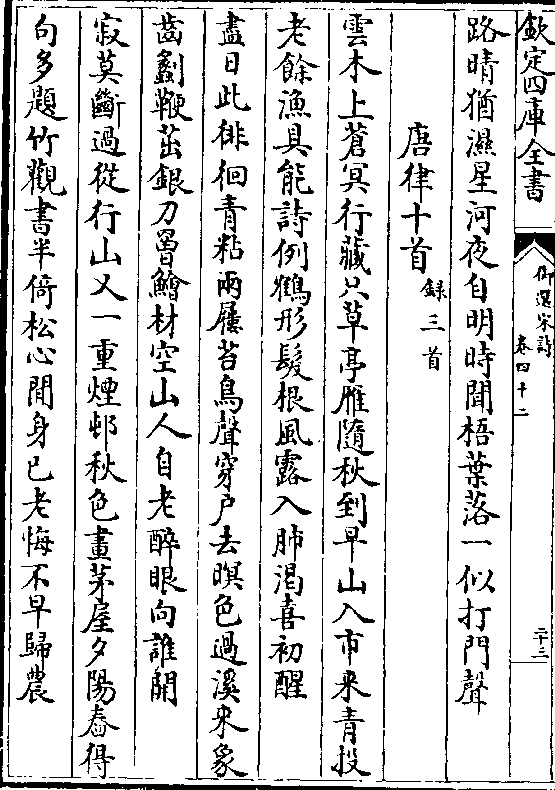 欽定四庫全書
御選宋詩
卷四十二
二十三
路晴猶濕星河夜自明時聞梧葉落一似打門聲
唐律十首錄三首
雲木上蒼冥行藏只草亭雁隨秋到早山入市來青投
老餘漁具能詩例鶴形髮根風露入肺渴喜初醒
盡日此徘徊青粘兩屨苔鳥聲穿户去暝色過溪來象
齒劖鞭茁銀刀罾鱠材空山人自老醉眼向誰開
寂莫斷過從行山又一重煙邨秋色畫茅屋夕陽舂得
句多題竹觀書半倚松心閒身已老悔不早歸農